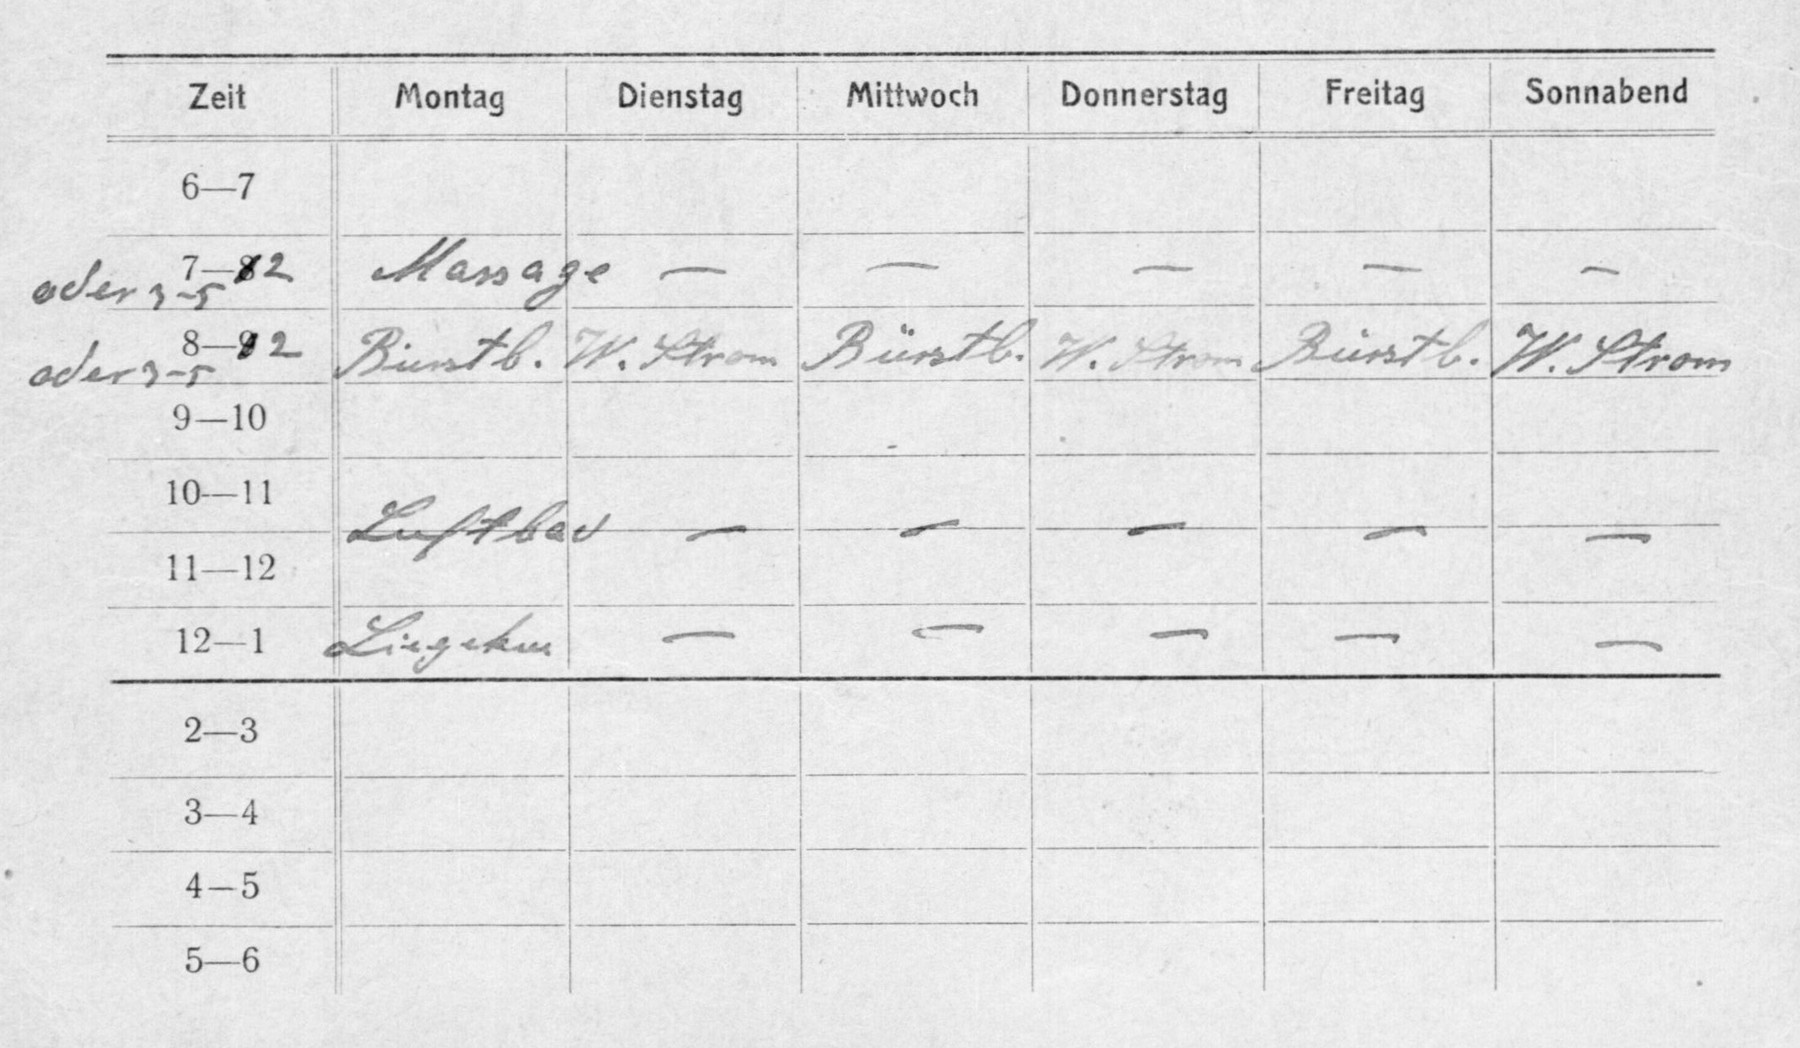 Zeit Montag Dienstag Mittwoch Donnerstag Freitag Sonnabend
6—7
7—12 Massage — — — — —
oder 3-5
8—12 Bürstb. W. Strom Bürstb. W. Strom Bürstb. W. Strom
oder 3-5
9—10
10—11
Luftbad — — — — —
11—12
12—1 Liegekur — — — — —
2—3
3—4
4—5
5—6